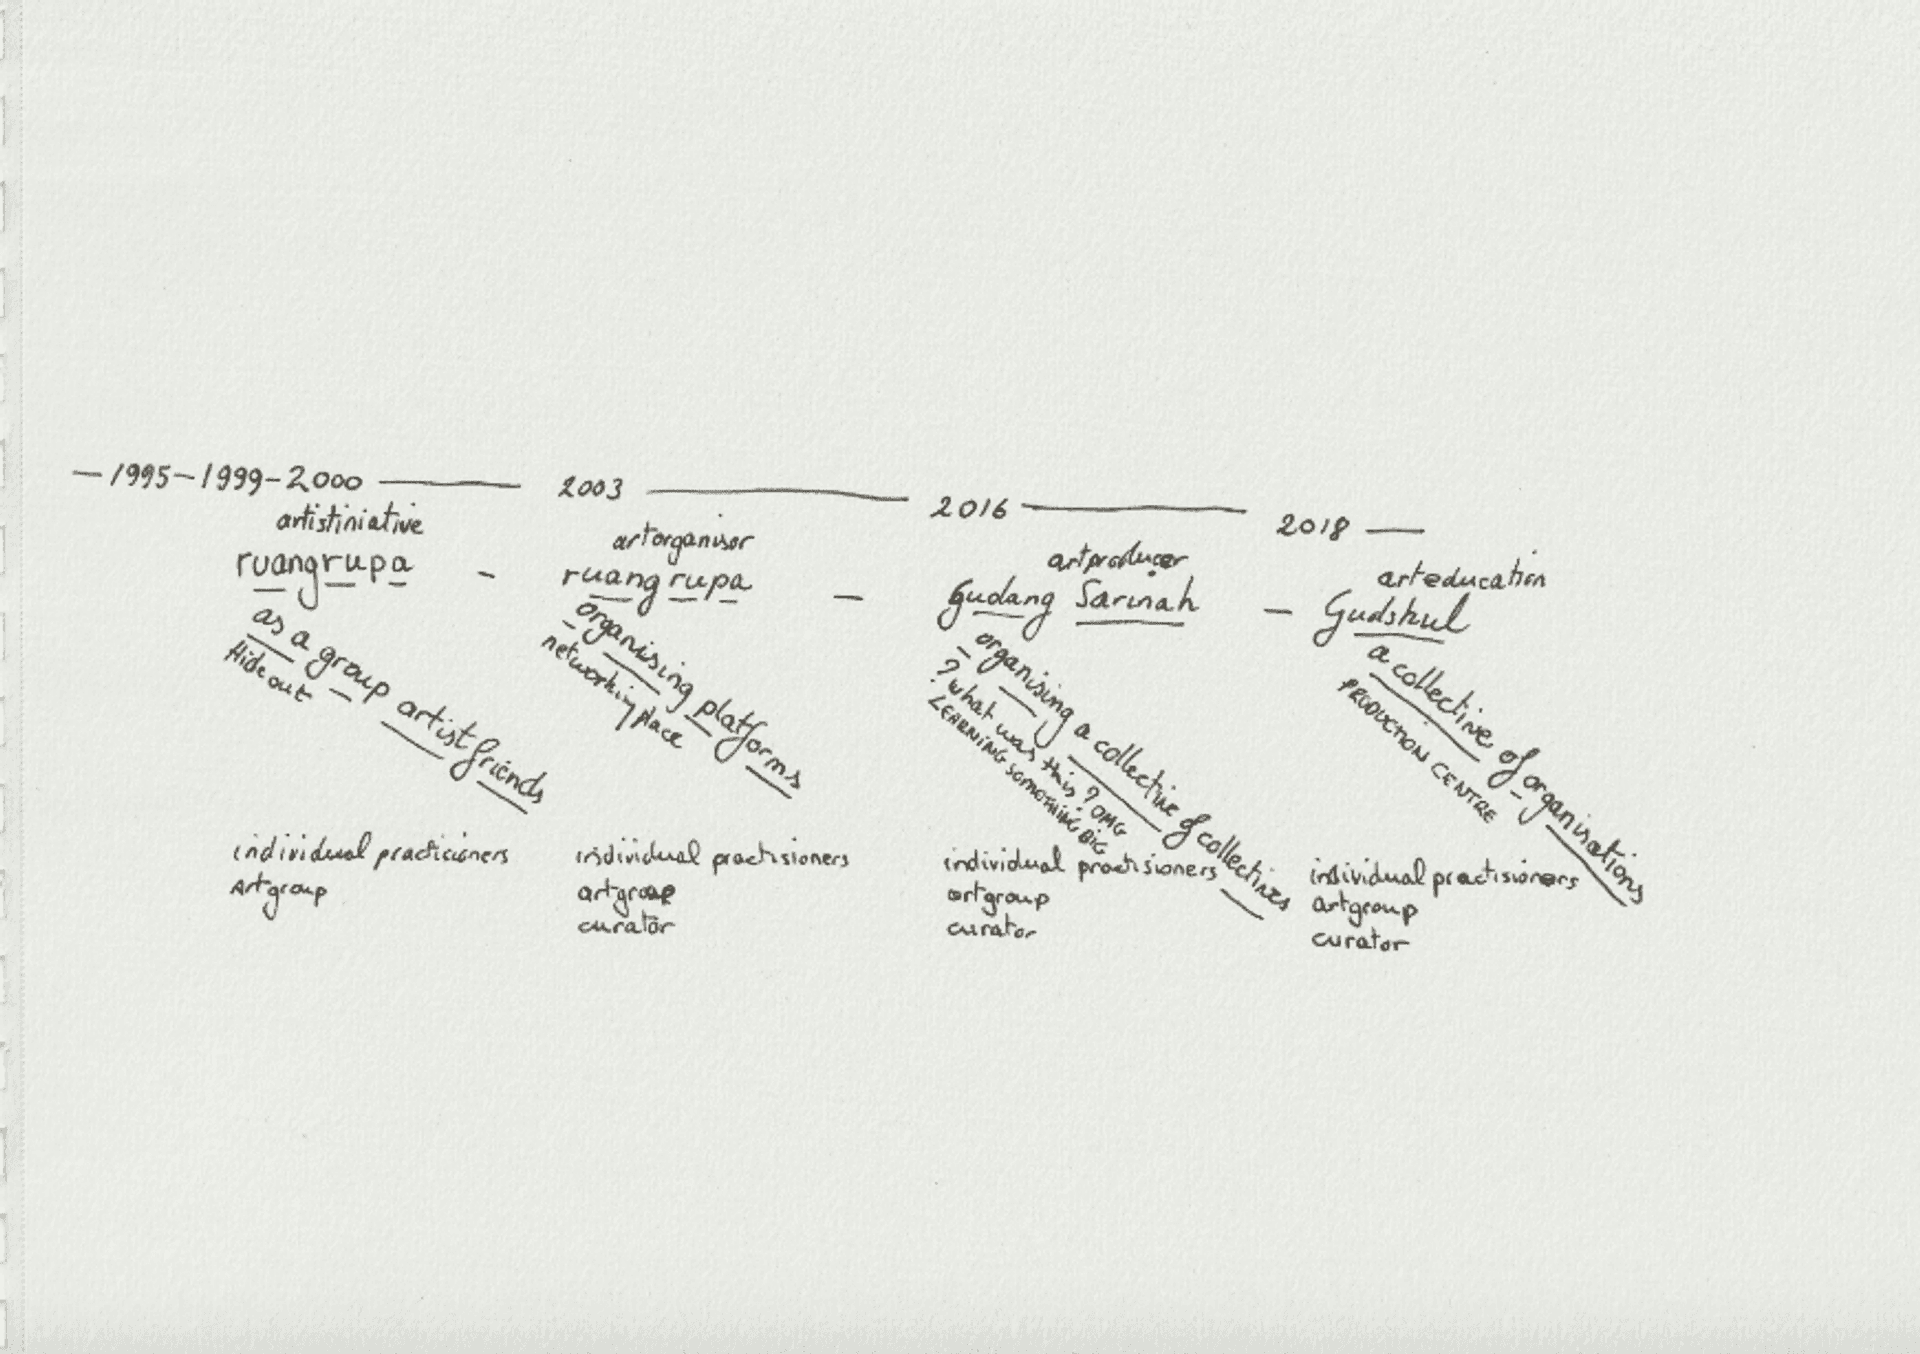 —1995—1999-2000 —— 2003 —— 2016 —— 2018 —
artistiniative
ruangrupa -
as a group artist friends
Hideout
individual practicioners
Artgroup
artorganisor
ruangrupa -
organising platforms
networking place
individual practisioners
artgroup
curator
artproducer
Gudang Sarinah -
organising a collective of collectives
? what was this? OMG
LEARNING SOMOTHING BIG
individual practisioners
artgroup
curator
arteducation
Gudskul
a collective of organisations
PRODUCTION CENTRE
individual practisioners
artgroup
curator